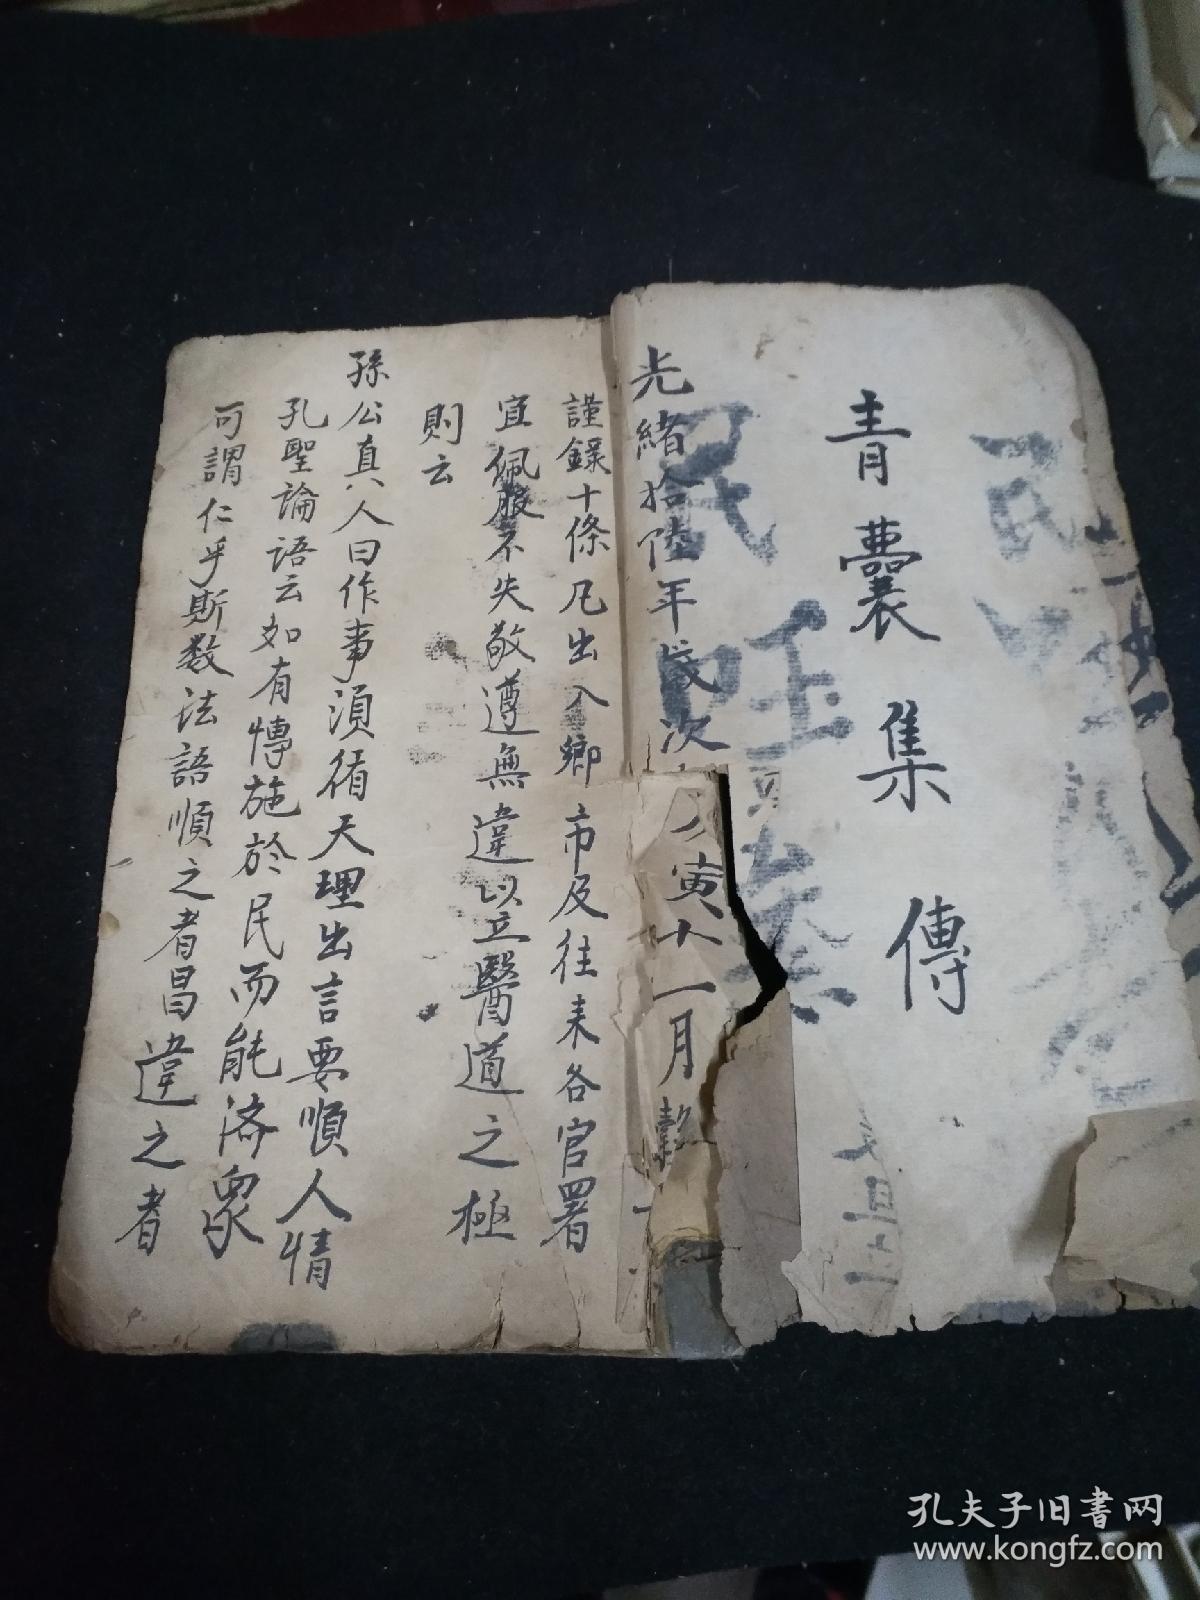 青囊集傳
光緒拾陸年歲次
寅十一月
謹錄十條凡出入鄉市及往来各官署
宜佩服不失敬遵無違以立醫道之極
則云
孫公真人曰作事須循天理出言要順人情
孔聖論語云如有博施於民而能済眾
可謂仁乎斯数法語順之者昌違之者
孔夫子旧书网
www.kongfz.com